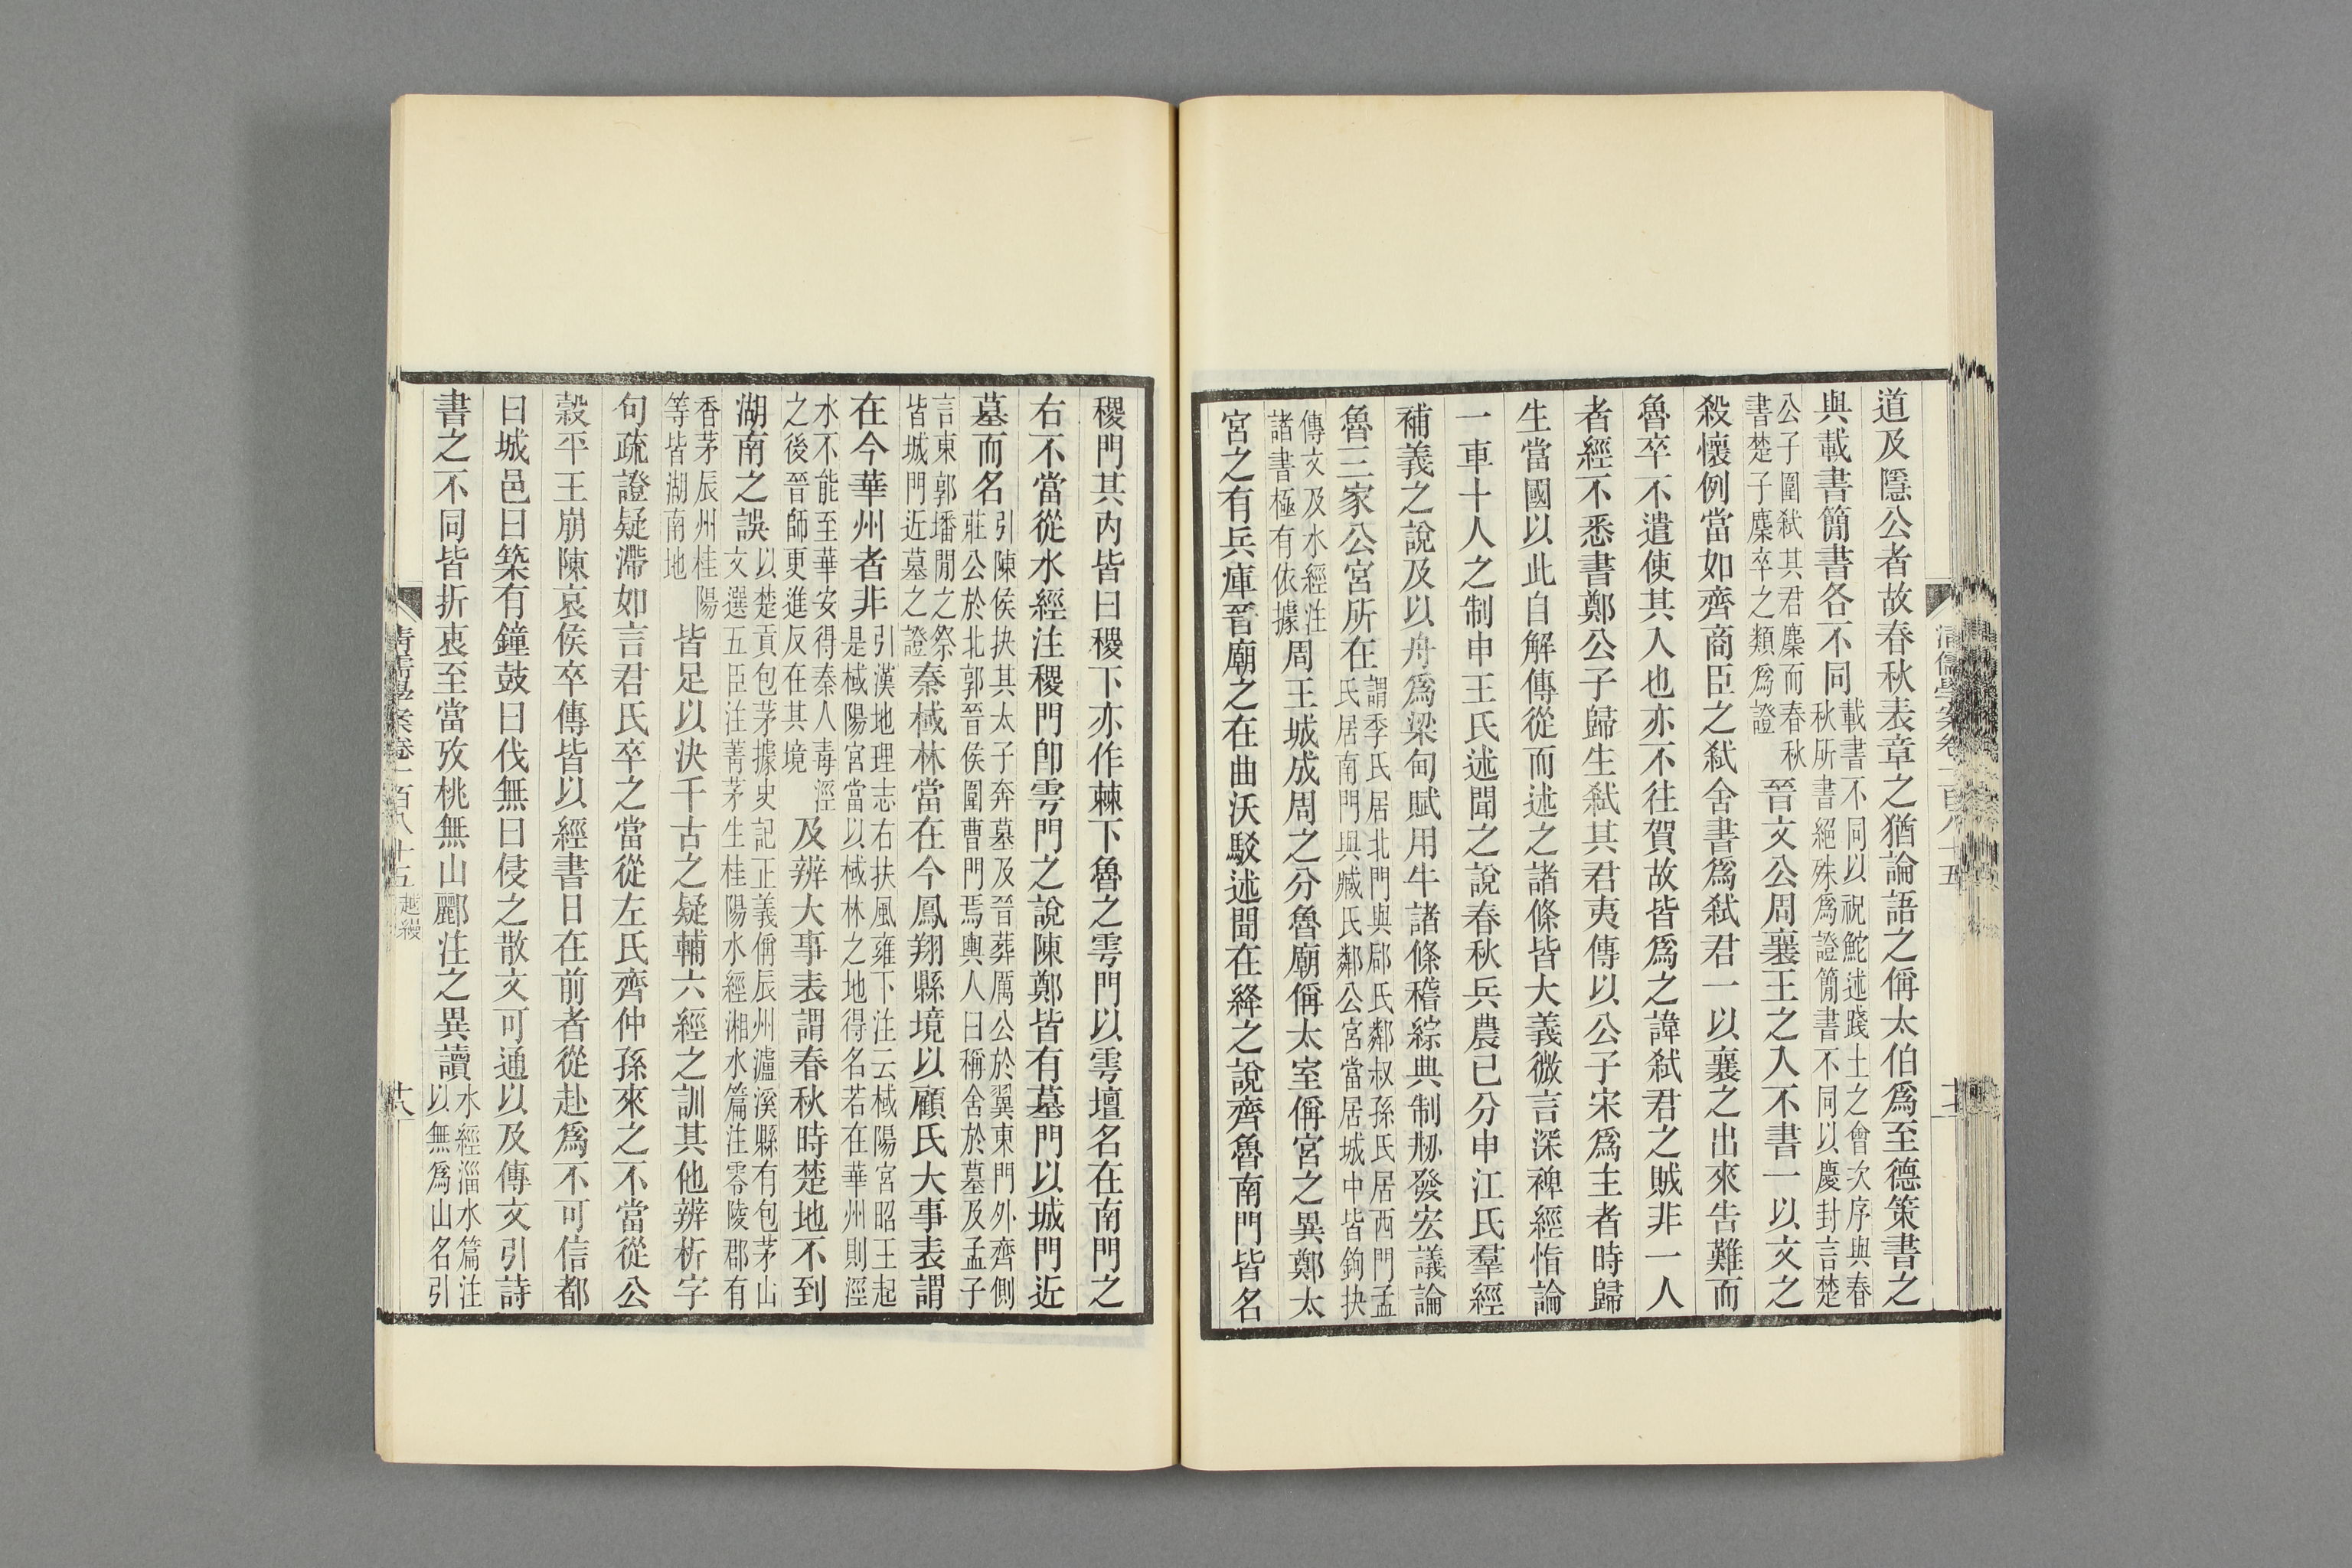 道及隱公者故春秋表章之猶論語之偁太伯爲至德策書之
與載書簡書各不同載書不同以祝鮀述踐土之會次序與春
秋所書絕殊爲證簡書不同以慶封言楚
公子圍弒其君麇而春秋
書楚子麇卒之類爲證晉文公周襄王之入不書一以文之
殺懷例當如齊商臣之弒舍書爲弒君一以襄之出來告難而
魯卒不遣使其入也亦不往賀故皆爲之諱弒君之賊非一人
者經不悉書鄭公子歸生弒其君夷傳以公子宋爲主者時歸
生當國以此自解傳從而述之諸條皆大義微言深裨經恉論
一車十人之制申王氏述聞之說春秋兵農已分申江氏羣經
補義之說及以舟爲梁句賦用牛諸條稽綜典制剙發宏議論
魯三家公宮所在謂季氏居北門與郈氏鄰叔孫氏居西門孟
氏居南門與臧氏鄰公宮當居城中皆鉤抉
傳文及水經注
諸書極有依據周王城成周之分魯廟偁太室偁宮之異鄭太
宮之有兵庫晉廟之在曲沃駁述聞在絳之說齊魯南門皆名
稷門其內皆曰稷下亦作棘下魯之雩門以雩壇名在南門之
右不當從水經注稷門卽雩門之說陳鄭皆有墓門以城門近
墓而名引陳侯抉其太子奔墓及晉葬厲公於翼東門外齊側
莊公於北郭晉侯圍曹門焉輿人曰稱舍於墓及孟子
言東郭墦閒之祭
皆城門近墓之證秦棫林當在今鳳翔縣境以顧氏大事表謂
在今華州者非引漢地理志右扶風雍下注云棫陽宮昭王起
是棫陽宮當以棫林之地得名若在華州則涇
水不能至華安得秦人毒涇
之後晉師更進反在其境及辨大事表謂春秋時楚地不到
湖南之誤以楚貢包茅據史記正義偁辰州瀘溪縣有包茅山
文選五臣注菁茅生桂陽水經湘水篇注零陵郡有
香茅辰州桂陽
等皆湖南地皆足以決千古之疑輔六經之訓其他辨析字
句疏證疑滯如言君氏卒之當從左氏齊仲孫來之不當從公
穀平王崩陳哀侯卒傳皆以經書日在前者從赴爲不可信都
曰城邑曰築有鐘鼓曰伐無曰侵之散文可通以及傳文引詩
書之不同皆折衷至當攷桃無山酈注之異讀水經淄水篇注
以無爲山名引
清儒學案卷一百八十五 越縵